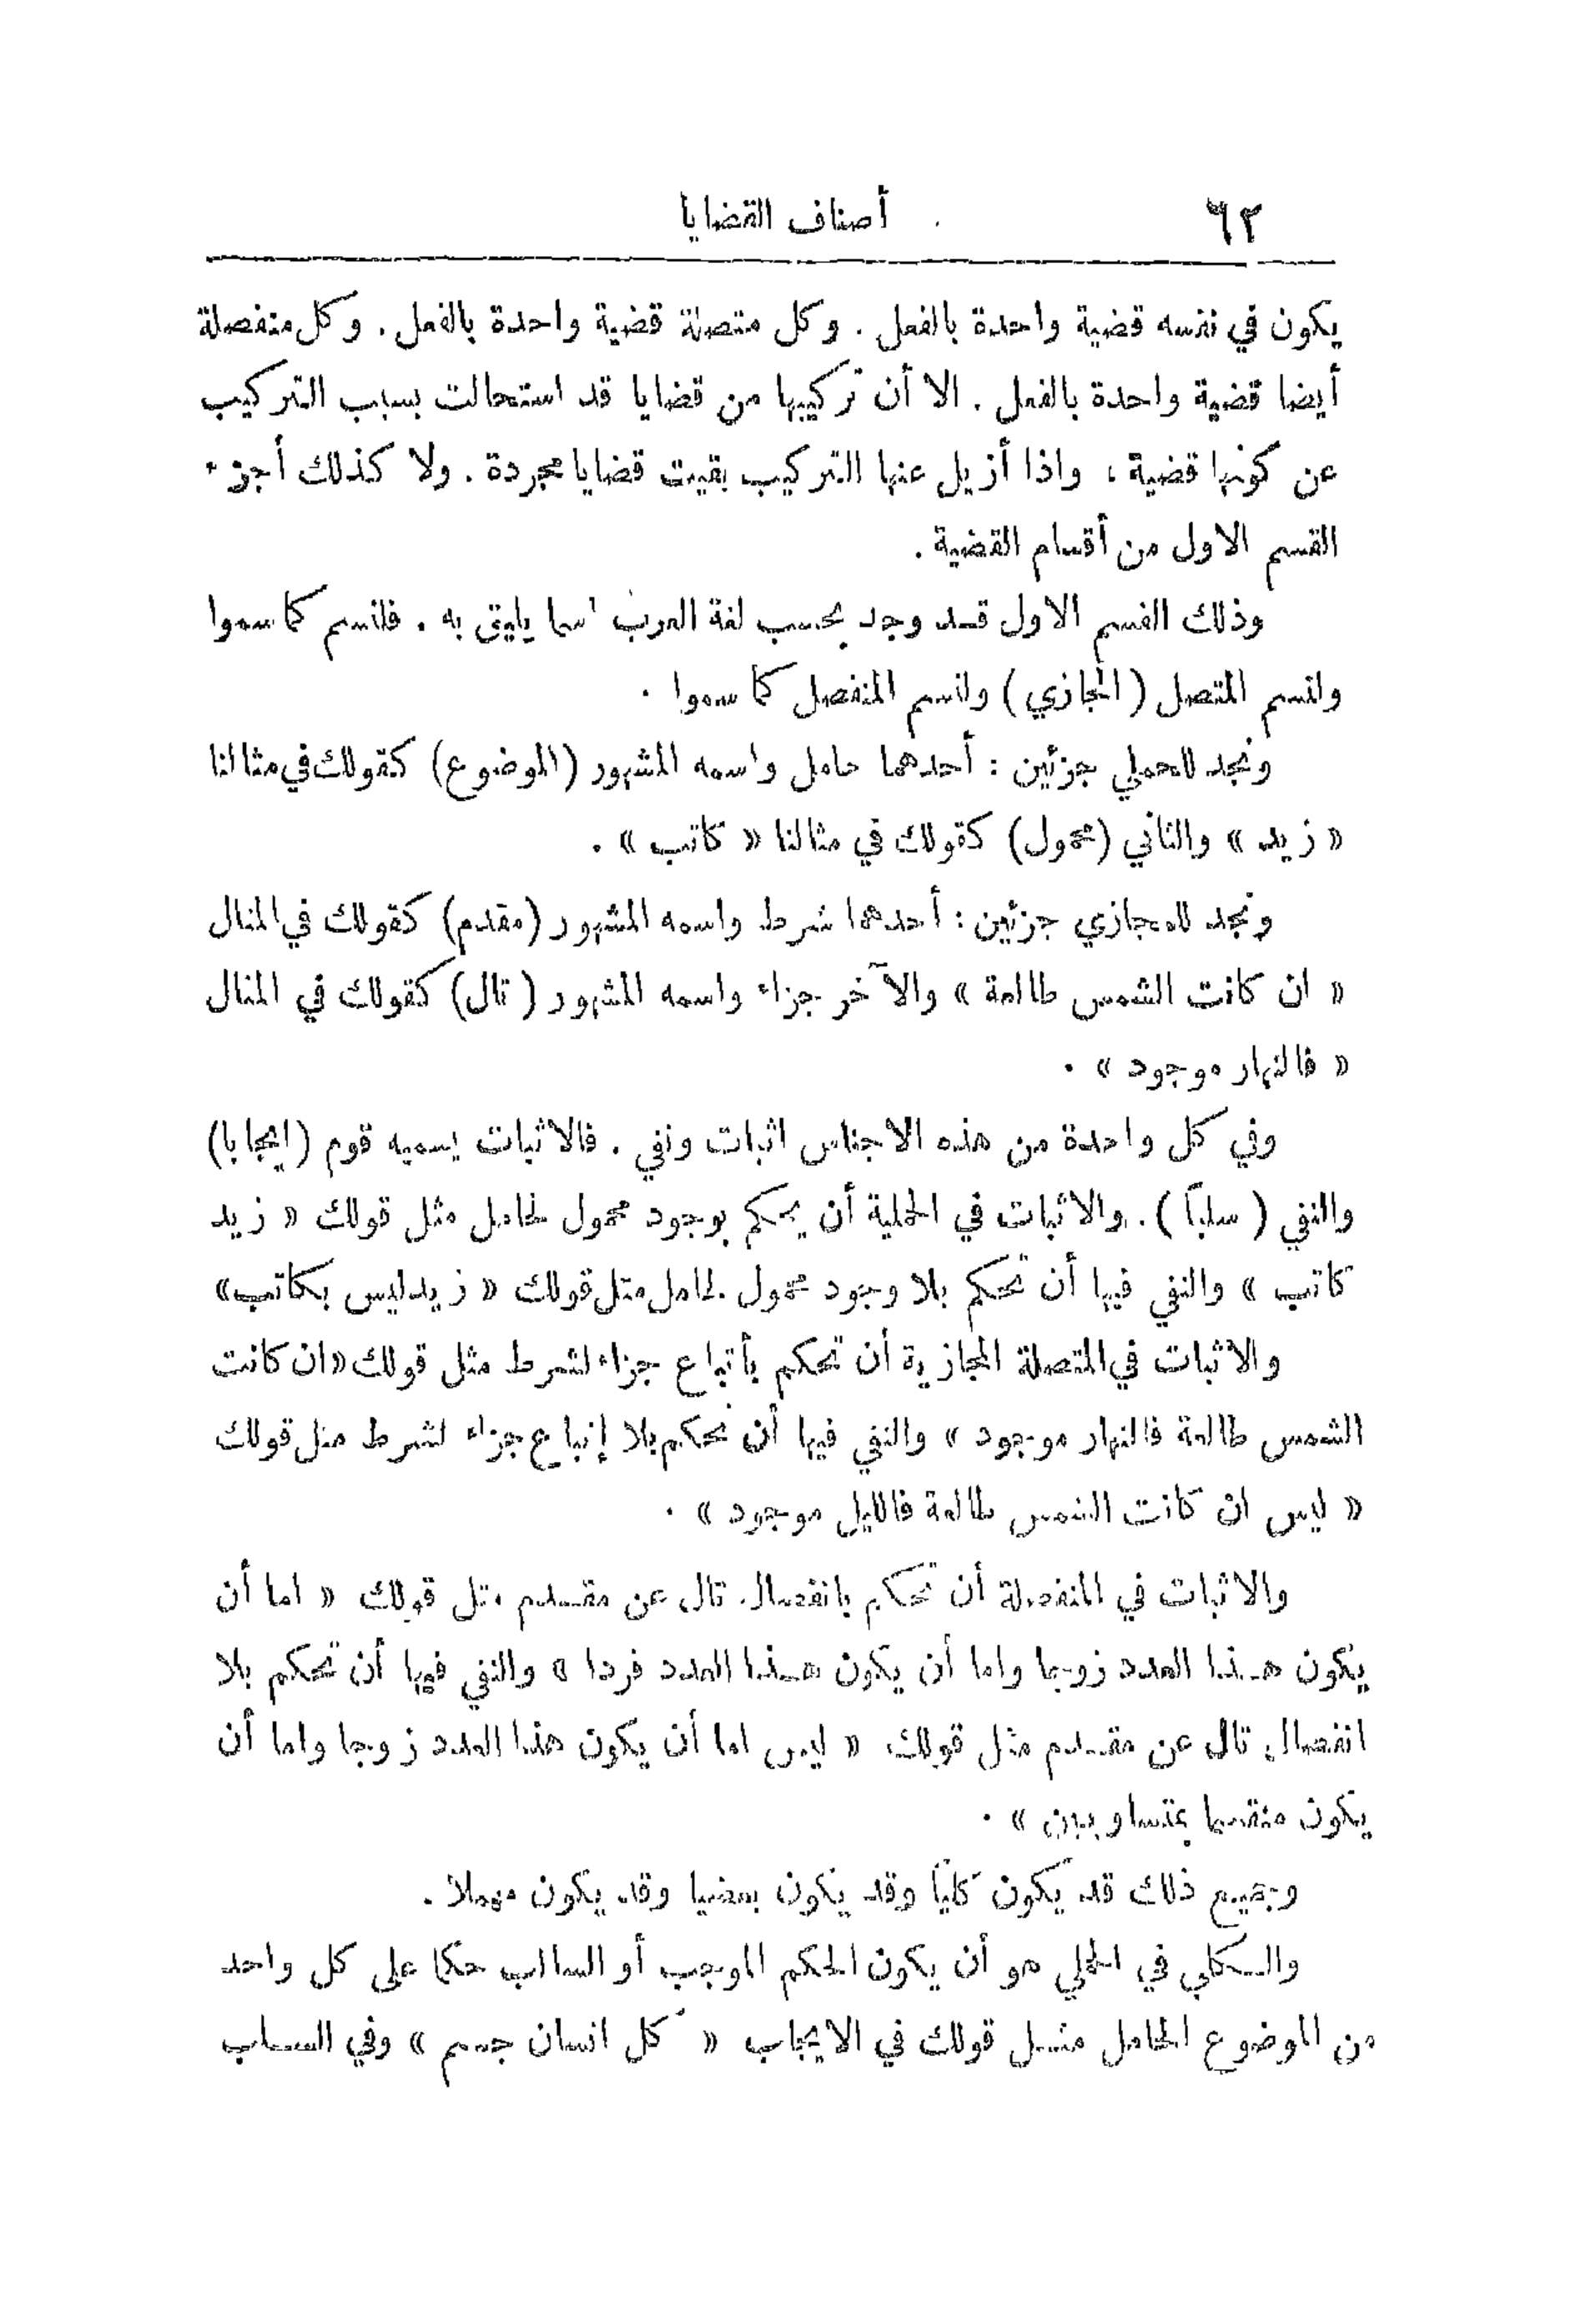 ٦٢ أصناف القضايا
يكون في نفسه قضية واحدة بالفعل . وكل متصلة قضية واحدة بالفعل . وكل منفصلة
أيضا قضية واحدة بالفعل . الا أن تركيبها من قضايا قد استحالت بسبب التركيب
عن كونها قضية ، واذا أزيل عنها التركيب بقيت قضايا مجردة . ولا كذلك أجزء
القسم الاول من أقسام القضية .
وذلك القسم الاول قد وجد بحسب لغة العرب اسما يليق به . فلنسم كما سموا
ولنسم المتصل ( المجازي ) ولنسم المنفصل كما سموا .
ونجد للحملي جزئين : أحدهما حامل واسمه المشهور (الموضوع) كقولك في مثالنا
« زيد » والثاني (محمول) كقولك في مثالنا « كاتب » .
ونجد للمجازي جزئين : أحدهما شرط واسمه المشهور (مقدم) كقولك في المثال
« ان كانت الشمس طالعة » والآخر جزاء واسمه المشهور ( تال) كقولك في المثال
« فالنهار موجود » .
وفي كل واحدة من هذه الاجناس اثبات ونفي . فالاثبات يسميه قوم (ايجابا)
والنفي ( سلباً ) . والاثبات في الحملية أن يحكم بوجود محمول لحامل مثل قولك « زيد
كاتب » والنفي فيها أن تحكم بلا وجود محمول لحامل مثل قولك « زيد ليس بكاتب»
والاثبات في المتصلة المجازية أن تحكم بأتباع جزاء لشرط مثل قولك «ان كانت
الشمس طالعة فالنهار موجود » والنفي فيها أن تحكم بلا إتباع جزاء لشرط مثل قولك
« ليس ان كانت الشمس طالعة فالليل موجود » .
والاثبات في المنفصلة أن تحكم بانفصال تال عن مقدم مثل قولك « اما أن
يكون هذا العدد زوجا واما أن يكون هذا العدد فردا » والنفي فيها أن تحكم بلا
انفصال تال عن مقدم مثل قولك « ليس اما أن يكون هذا العدد زوجا واما أن
يكون منقسما بمتساويين » .
وجميع ذلك قد يكون كليا وقد يكون بعضيا وقد يكون مهملا .
والكلي في الحملي هو أن يكون الحكم الموجب أو السالب حكما على كل واحد
من الموضوع الحامل مثل قولك في الايجاب « كل انسان جسم » وفي السلب